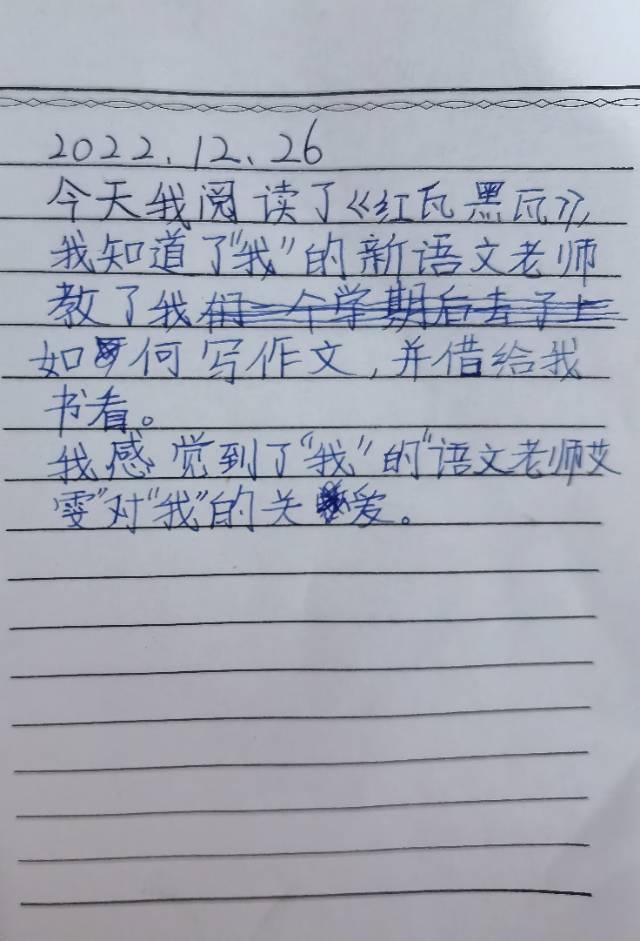 2022.12.26
今天我阅读了《红瓦黑瓦》,
我知道了“我”的新语文老师
教了我们一个学期后去了上
如何写作文,并借给我
书看。
我感觉到了“我”的“语文老师艾
雯”对“我”的关爱。